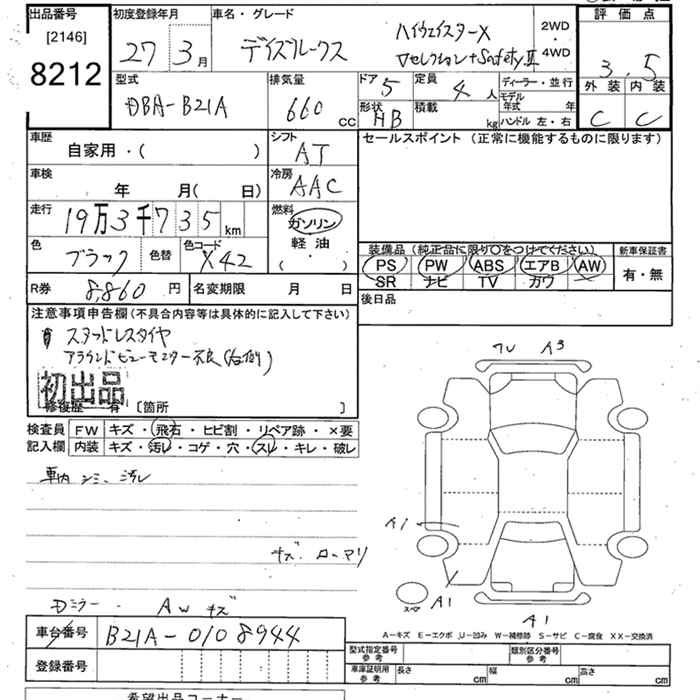 出品番号
[2146]
8212
初度登録年月
27 3月
車名・グレード
デイズルークス
ハイウェイスターX
Vセレクション+SafetyⅡ
2WD
・
4WD
評価点
3.5
外装 内装
C C
型式
DBA-B21A
排気量
660 CC
ドア 5
定員 4人
形状 HB
積載 kg
ディーラー・並行
モデル年式 年
ハンドル 左・右
車歴
自家用・( )
シフト
AT
セールスポイント(正常に機能するものに限ります)
車検
年 月( 日)
冷房
AAC
走行
19万3千735km
燃料
ガソリン
軽油
・
( )
色 ブラック 色替
色コード X42
装備品(純正品に限り○をつけてください)
PS PW ABS エアB AW
SR ナビ TV カワ
新車保証書
有・無
R券 8,860 円
名変期限 月 日
後日品
注意事項申告欄(不具合内容等は具体的に記入して下さい)
スタッドレスタイヤ
アラウンドビューモニター不良(右側)
初出品
修復歴 有 [箇所 ]
検査員記入欄
FW キズ・飛石・ヒビ割・リペア跡・×要
内装 キズ・汚レ・コゲ・穴・スレ・キレ・破レ
車内 シミ、汚レ
A3
A1
A1
スペア
A1
A−キズ E−エクボ U−凹み W−補修跡 S−サビ C−腐食 XX−交換済
車台番号 B21A-0108944
登録番号
型式指定番号
参考
類別区分番号
参考
車庫証明用
参考
長さ cm
幅 cm
高さ cm
希望出品コーナー